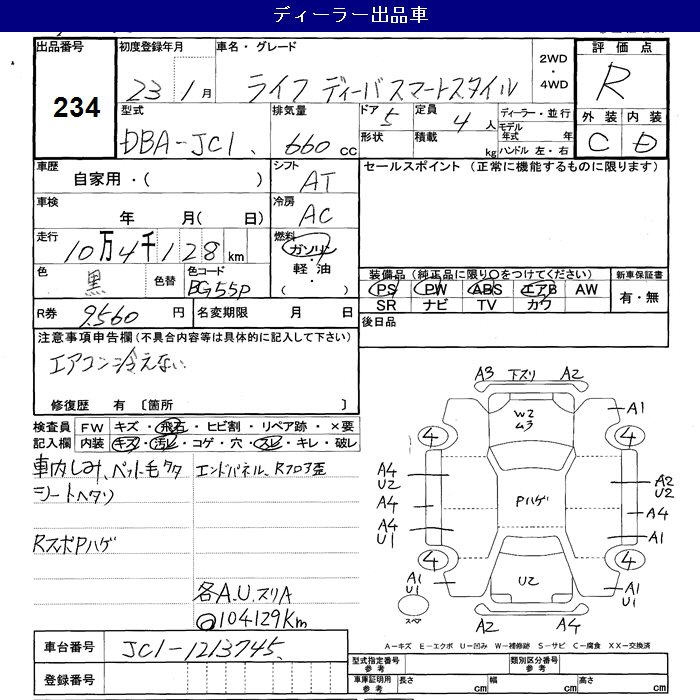 ディーラー出品車
出品番号
234
初度登録年月
23 1月
車名・グレード
ライフ ディーバスマートスタイル
2WD
・
4WD
評価点
R
外装 内装
C D
型式
DBA-JC1
排気量
660 cc
ドア 5
形状
定員
4 人
積載
kg
ディーラー・並行
モデル年式 年
ハンドル 左・右
車歴
自家用・( )
シフト
AT
セールスポイント (正常に機能するものに限ります)
車検
年 月( 日)
冷房
AC
走行
10万4千128km
燃料
ガソリン
・
軽油
・
( )
色
黒
色替
色コード
BG55P
装備品(純正品に限り○をつけてください)
新車保証書
PS PW ABS エアB AW
SR ナビ TV カワ
有・無
R券 9560円
名変期限 月 日
後日品
注意事項申告欄(不具合内容等は具体的に記入して下さい)
エアコン冷えない
修復歴 有〔箇所 〕
検査員記入欄
FW キズ・飛石・ヒビ割・リペア跡・×要
内装 キズ・汚レ・コゲ・穴・スレ・キレ・破レ
車内しみ、ペット毛タタ
シートヘタリ
エンドパネル、Rフロア歪
RスポPハゲ
各A.U.スリA
104129Km
車台番号 JC1-1213745
登録番号
A3 下スリ A2
W2
A1
4 4
A4
U2
A4
A4
U1
Pハゲ
A2
U2
A4
4 4
A1
U1
U2
A1
U1
スペア
A2 A4
A-キズ E-エクボ U-凹み W-補修跡 S-サビ C-腐食 XX-交換済
型式指定番号
参考
類別区分番号
参考
車庫証明用
参考
長さ cm
幅 cm
高さ cm